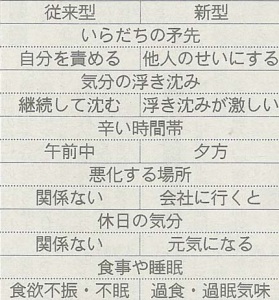 従来型 新型
いらだちの矛先
自分を責める 他人のせいにする
気分の浮き沈み
継続して沈む 浮き沈みが激しい
辛い時間帯
午前中 夕方
悪化する場所
関係ない 会社に行くと
休日の気分
関係ない 元気になる
食事や睡眠
食欲不振・不眠 過食・過眠気味